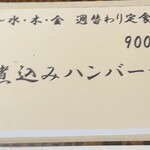 水・木・金 週替わり定食
900
煮込みハンバー